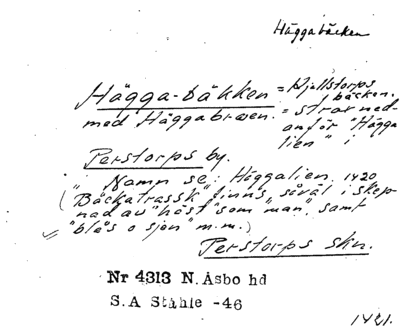 Häggabäcken
Hägga-bäkken = Kjellstorps
bäcken.
med Häggabroen. = strax ned-
anför "Hägga
lien" i
Perstorps by.
" Namn se: Häggalien. 1420
("Bäckatrassk" finns, såväl i skep-
nad av "häst" som "man", samt
"blås o sjen" m.m.)
Perstorps skn.
Nr 4313 N. Åsbo hd
S.A Ståhle -46
1421.